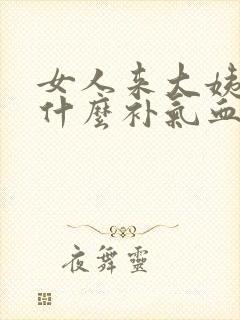 女人来大姨
什麼补氣血
夜舞靈